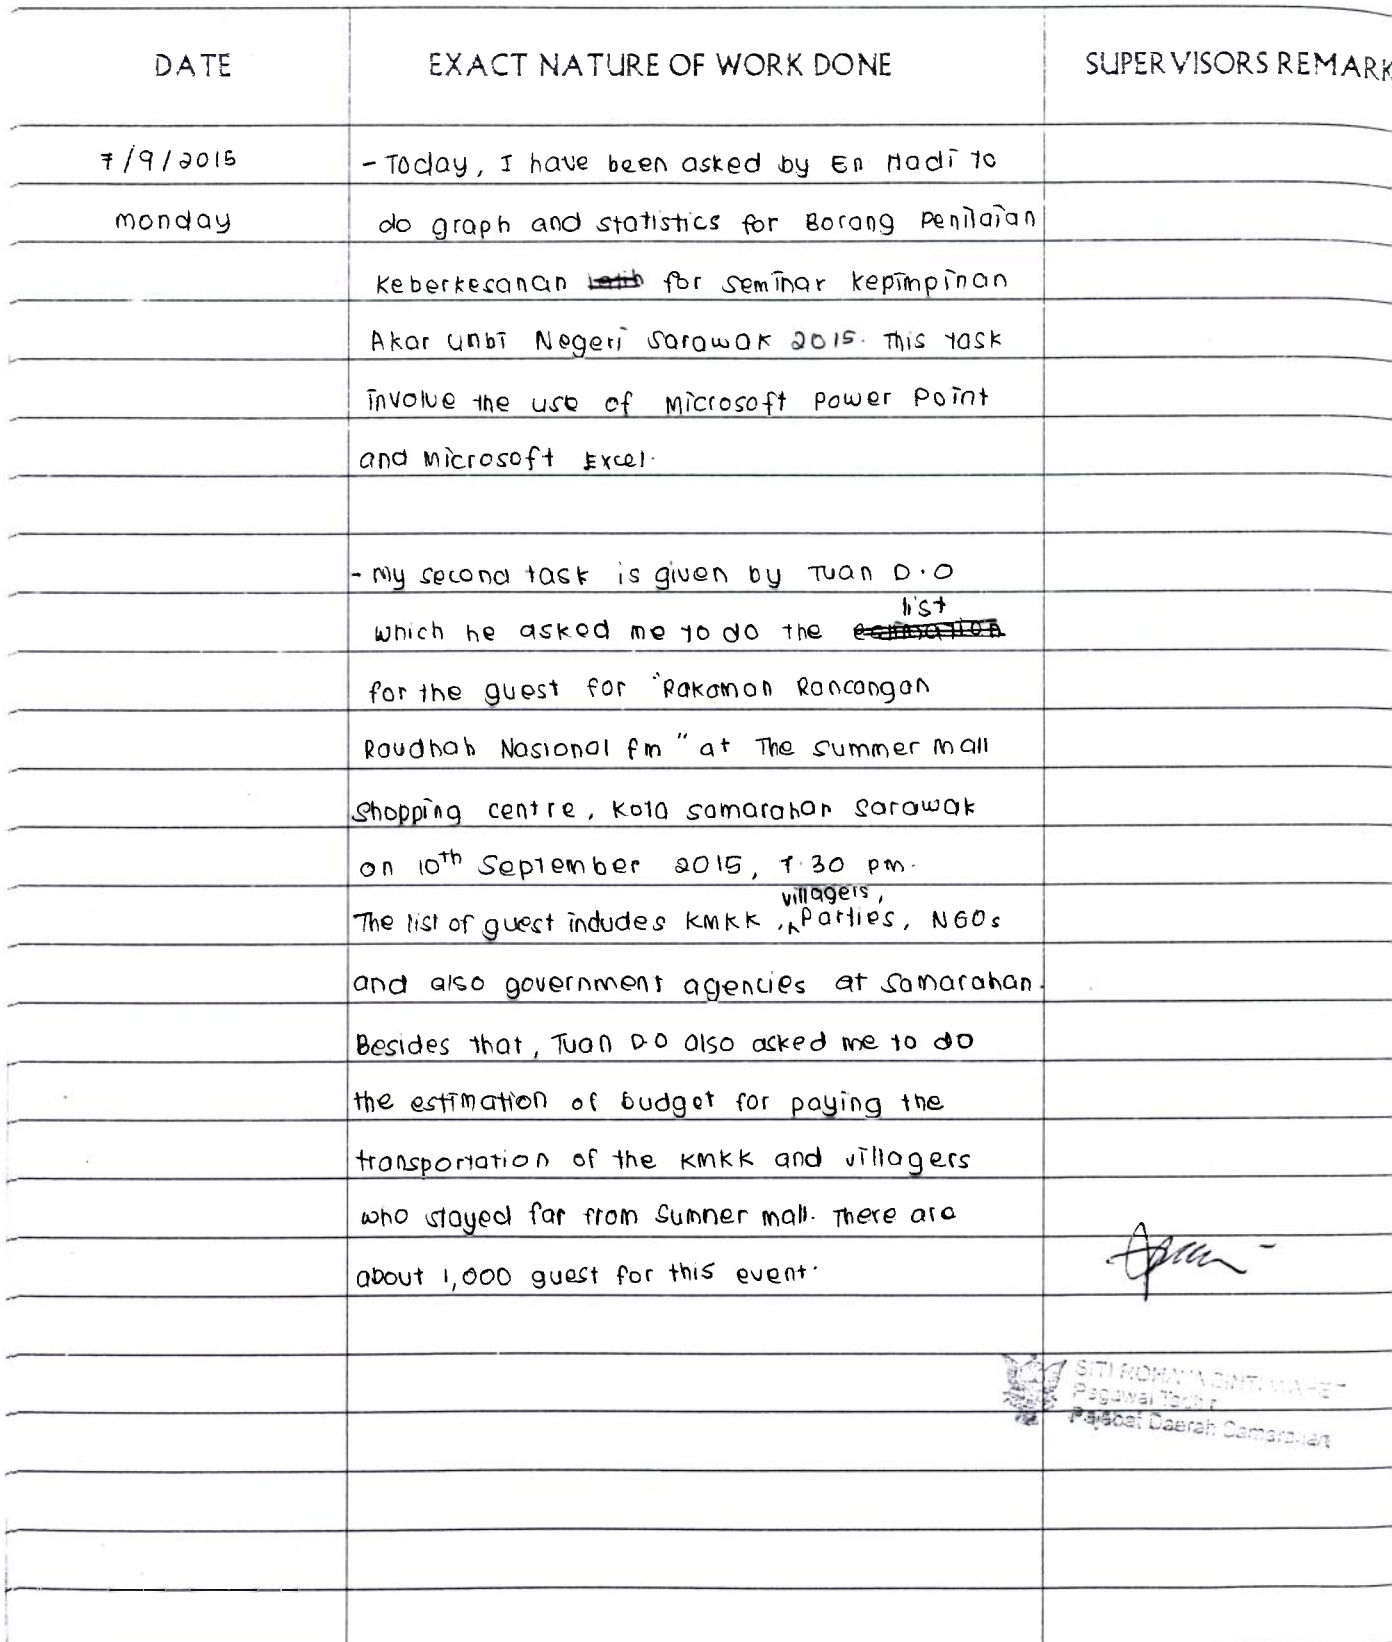 DATE EXACT NATURE OF WORK DONE SUPERVISORS REMARK
7/9/2015 - Today, I have been asked by En Hadi to
monday do graph and statistics for Borang Penilaian
Keberkesanan for seminar kepimpinan
Akar Umbi Negeri Sarawak 2015. This task
involve the use of Microsoft Power Point
and Microsoft Excel.
- My second task is given by Tuan D.O
list
which he asked me to do the estimation
for the guest for "Rakaman Rancangan
Raudhah Nasional fm" at The Summer Mall
Shopping centre, Kota Samarahan Sarawak
on 10th September 2015, 7.30 pm.
villagers,
The list of guest includes KMKK, Parties, NGOs
and also government agencies at Samarahan.
Besides that, Tuan D.O also asked me to do
the estimation of budget for paying the
transportation of the KMKK and villagers
who stayed far from Summer mall. There are
about 1,000 guest for this event.
SITI
Pegawai Tadbir
Pejabat Daerah Samarahan